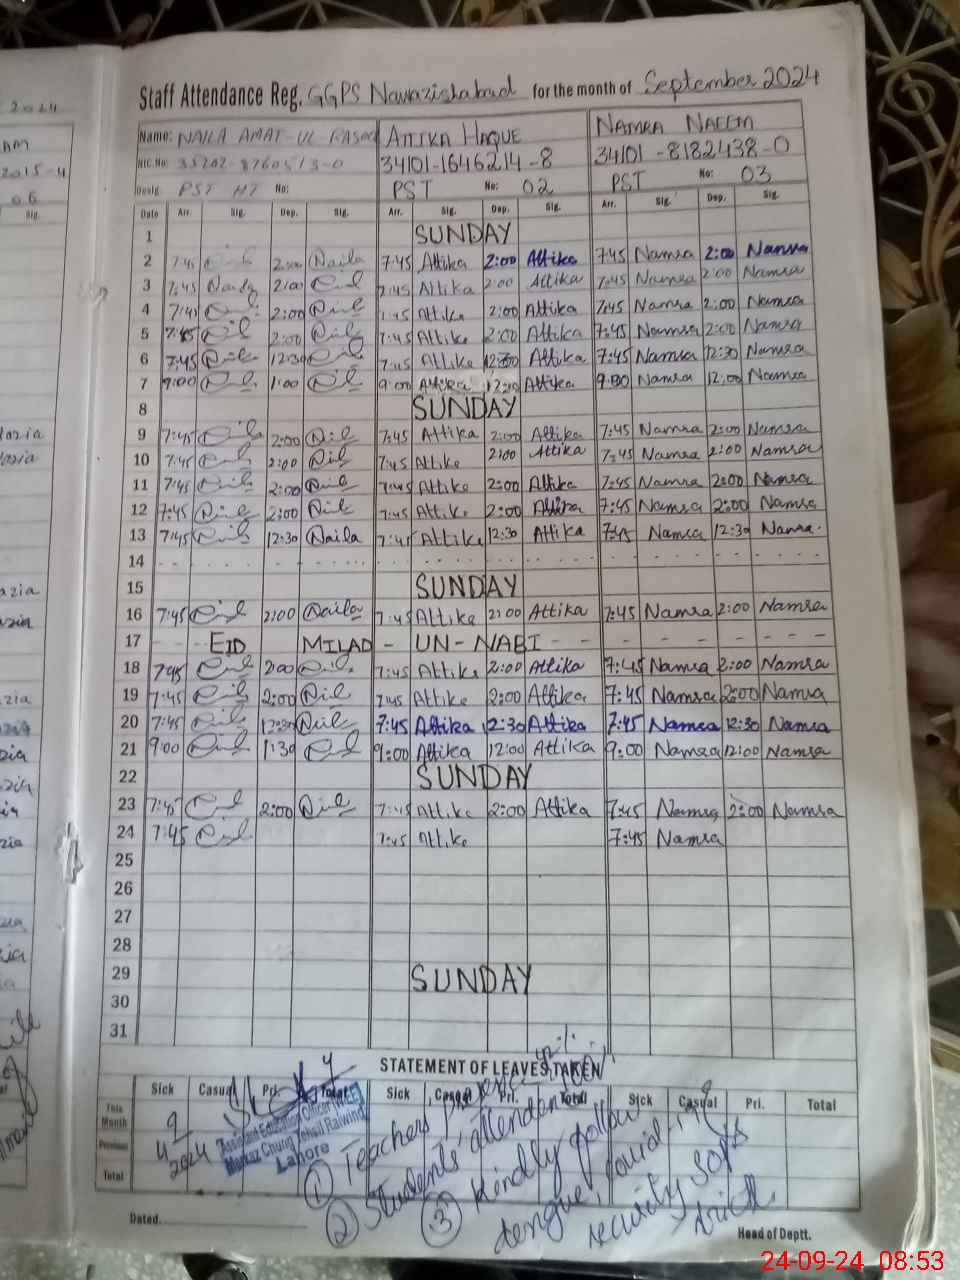 Staff Attendance Reg. GGPS Nawazishabad for the month of September 2024
Name: NAILA AMAT-UL RASOOL ATTIKA HAQUE NAMRA NAEEM
NIC.No: 35202-8760513-0 34101-1646214-8 34101-8182438-0
Desig. PST HT No: PST No: 02 PST No: 03
Date Arr. Sig. Dep. Sig. Arr. Sig. Dep. Sig. Arr. Sig. Dep. Sig.
1 SUNDAY
2 7:45 2:00 Naila 7:45 Attika 2:00 Attika 7:45 Namra 2:00 Namra
3 7:45 2:00 7:45 Attika 2:00 Attika 7:45 Namra 2:00 Namra
4 7:45 2:00 7:45 Attika 2:00 Attika 7:45 Namra 2:00 Namra
5 7:45 2:00 7:45 Attika 2:00 Attika 7:45 Namra 2:00 Namra
6 7:45 12:30 7:45 Attika 12:30 Attika 7:45 Namra 12:30 Namra
7 9:00 1:00 9:00 Attika 12:00 Attika 9:00 Namra 12:00 Namra
8 SUNDAY
9 7:45 2:00 7:45 Attika 2:00 Attika 7:45 Namra 2:00 Namra
10 7:45 2:00 7:45 Attika 2:00 Attika 7:45 Namra 2:00 Namra
11 7:45 2:00 7:45 Attika 2:00 Attika 7:45 Namra 2:00 Namra
12 7:45 2:00 7:45 Attika 2:00 Attika 7:45 Namra 2:00 Namra
13 7:45 12:30 Naila 7:45 Attika 12:30 Attika 7:45 Namra 12:30 Namra
14
15 SUNDAY
16 7:45 2:00 Naila 7:45 Attika 2:00 Attika 7:45 Namra 2:00 Namra
17 EID MILAD - UN - NABI
18 7:45 2:00 7:45 Attika 2:00 Attika 7:45 Namra 2:00 Namra
19 7:45 2:00 7:45 Attika 2:00 Attika 7:45 Namra 2:00 Namra
20 7:45 12:30 7:45 Attika 12:30 Attika 7:45 Namra 12:30 Namra
21 9:00 1:30 9:00 Attika 12:00 Attika 9:00 Namra 12:00 Namra
22 SUNDAY
23 7:45 2:00 7:45 Attika 2:00 Attika 7:45 Namra 2:00 Namra
24 7:45 7:45 Attika 7:45 Namra
25
26
27
28
29 SUNDAY
30
31
STATEMENT OF LEAVES TAKEN
Sick Casual Pri. Total Sick Casual Pri. Total Sick Casual Pri. Total
This Month
Previous
Total
2024
Assistant Education Officer
Markaz Chung Tehsil Raiwind
Lahore
① Teachers
② Students attendance
③ Kindly follow
dengue, covid-19
security SOPs
Dated.
Head of Deptt.
24-09-24 08:53